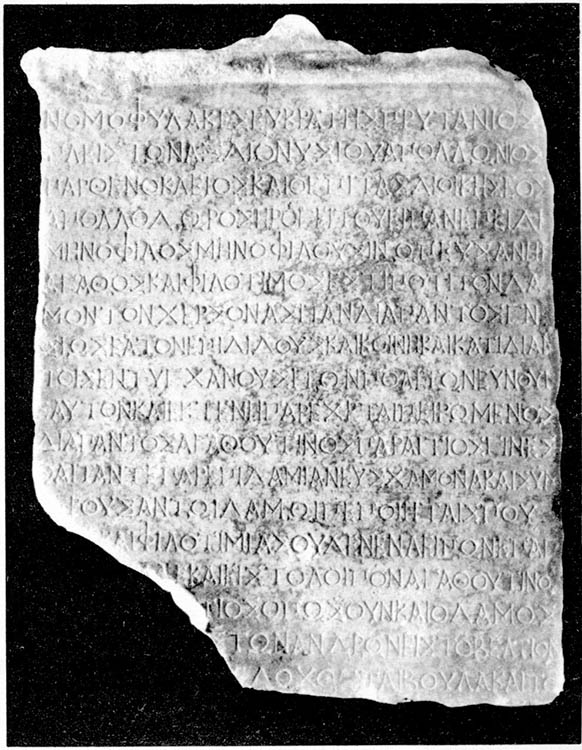 ΝΟΜΟΦΥΛΑΚΕΣΕΥΚΡΑΤΗΣΠΡΥΤΑΝΙΟΣ
ΠΛΕΙΣΤΩΝΑΞΔΙΟΝΥΣΙΟΥΑΠΟΛΛΩΝΙΟΣ
ΠΑΡΘΕΝΟΚΛΕΙΟΣΚΑΙΟΕΠΙΤΑΣΔΙΟΙΚΗΣΕΟΣ
ΑΠΟΛΛΟΔΩΡΟΣΗΡΟΓΕΙΤΟΥΕΙΠΑΝΕΠΕΙΔΗ
ΜΗΝΟΦΙΛΟΣΜΗΝΟΦΙΛΟΥΣΙΝΩΠΕΥΣΑΝΗΡ
ΑΓΑΘΟΣΚΑΙΦΙΛΟΤΙΜΟΣΕΣΤΙΠΟΤΙΤΟΝΔΑ
ΜΟΝΤΟΝΧΕΡΣΟΝΑΣΙΤΑΝΔΙΑΠΑΝΤΟΣΓΕΝΕ
ΣΙΩΣΕΑΤΟΝΕΠΙΔΙΔΟΥΣΚΑΙΚΟΙΝΕΙΚΑΙΚΑΤΙΔΙΑΝ
ΤΟΙΣΕΝΤΥΓΧΑΝΟΥΣΙΤΩΝΠΟΛΙΤΩΝΕΥΝΟΥΝ
ΕΑΥΤΟΝΚΑΙΕΚΤΕΝΗΠΑΡΕΧΕΤΑΙΠΕΙΡΩΜΕΝΟΣ
ΔΙΑΠΑΝΤΟΣΑΓΑΘΟΥΤΙΝΟΣΠΑΡΑΙΤΙΟΣΓΙΝΕΣ
ΘΑΙΤΑΝΤΕΠΑΡΕΠΙΔΑΜΙΑΝΕΥΣΧΑΜΟΝΑΚΑΙΣΥΜ
ΦΕΡΟΥΣΑΝΤΩΙΔΑΜΩΙΠΕΠΟΙΗΤΑΙΣΠΟΥ
ΚΑΙΦΙΛΟΤΙΜΙΑΣΟΥΔΕΝΕΛΛΕΙΠΩΝΕΠΑΓ
ΚΑΙΕΙΣΤΟΛΟΙΠΟΝΑΓΑΘΟΥΤΙΝΟ
ΤΙΟΣΟΠΩΣΟΥΝΚΑΙΟΔΑΜΟΣ
ΤΩΝΑΝΔΡΩΝΕΙΣΤΟΒΕΛΤΙΟ
ΔΟΧΘΑΙΤΑΙΒΟΥΛΑΙΚΑΙΤΩ